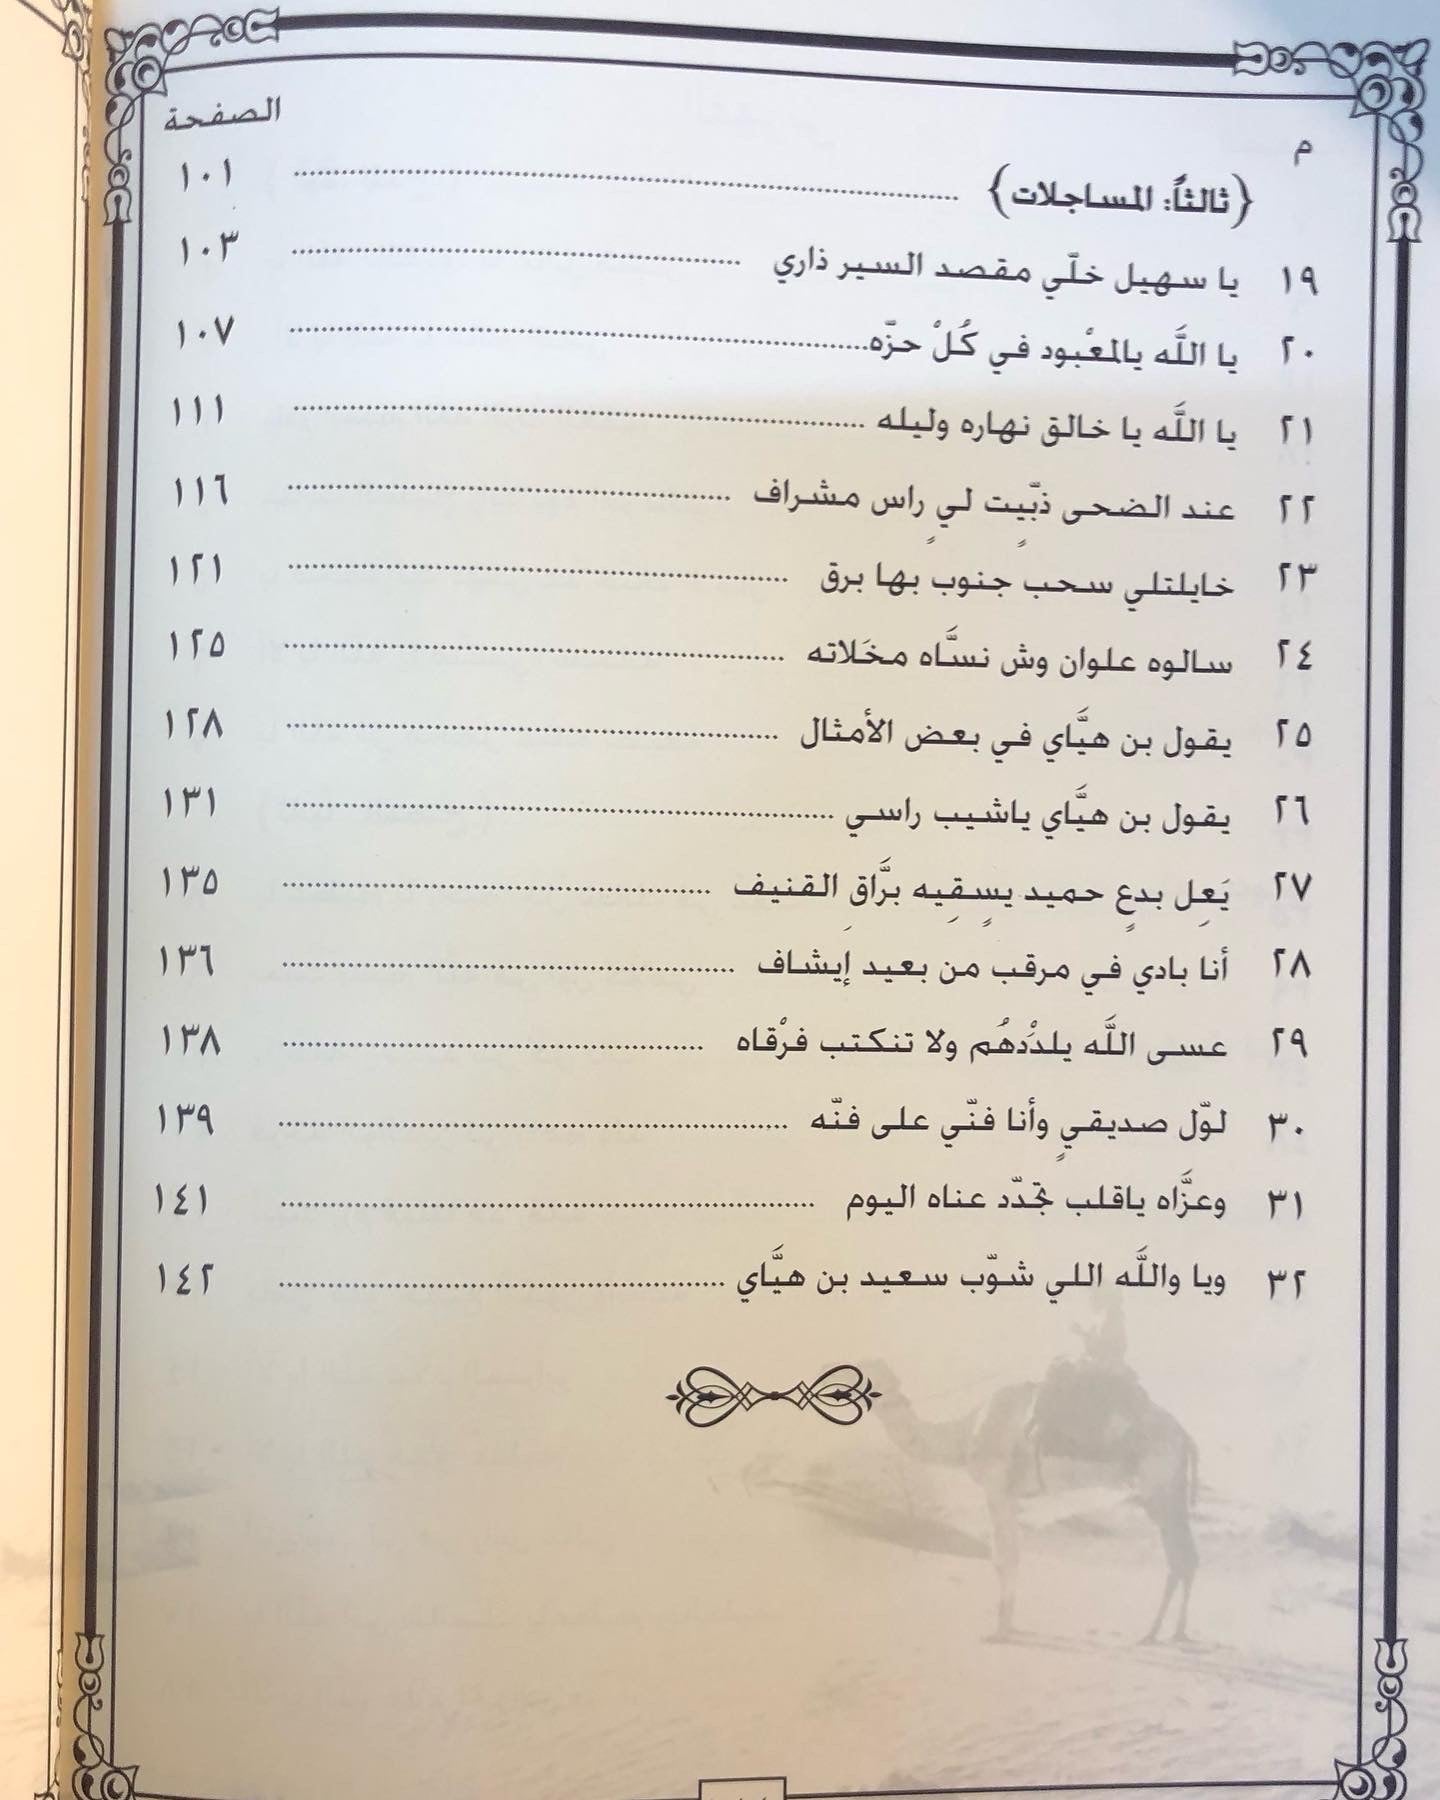 م الصفحة
{ثالثاً: المساجلات} ١٠١
١٩ يا سهيل خلّي مقصد السير ذاري ١٠٣
٢٠ يا اللَّه يالمعْبود في كُلْ حزّه ١٠٧
٢١ يا اللَّه يا خالق نهاره وليله ١١١
٢٢ عند الضحى ذبّيتٍ ليٍ راس مشراف ١١٦
٢٣ خايلتلي سحب جنوب بها برق ١٢١
٢٤ سالوه علوان وش نسَّاه مخَلاته ١٢٥
٢٥ يقول بن هيَّاي في بعض الأمثال ١٢٨
٢٦ يقول بن هيَّاي ياشيب راسي ١٣١
٢٧ يَعِل بدعٍ حميد يسٍقِيه برَّاقِ القنيف ١٣٥
٢٨ أنا بادي في مرقب من بعيد إيشاف ١٣٦
٢٩ عسى اللَّه يلدْدهُم ولا تنكتب فرْقاه ١٣٨
٣٠ لوّل صديقيٍ وأنا فنّي على فنّه ١٣٩
٣١ وعزَّاه ياقلب تجدّد عناه اليوم ١٤١
٣٢ ويا واللَّه اللي شوّب سعيد بن هيَّاي ١٤٢